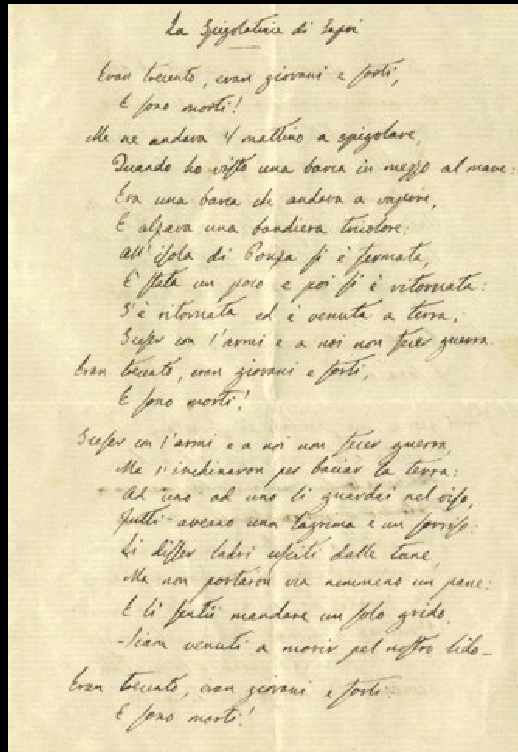 La Spigolatrice di Sapri
Eran trecento, eran giovani e forti,
E sono morti!
Me ne andava il mattino a spigolare,
Quando ho visto una barca in mezzo al mare:
Era una barca che andava a vapore,
E alzava una bandiera tricolore:
All'isola di Ponza si è fermata,
E' stata un poco e poi si è ritornata:
S'è ritornata ed è venuta a terra;
Sceser con l'armi e a noi non fecer guerra.
Eran trecento, eran giovani e forti,
E sono morti!
Sceser con l'armi e a noi non fecer guerra,
Ma s'inchinaron per baciar la terra:
Ad uno ad uno li guardai nel viso,
Tutti aveano una lagrima e un sorriso.
Li disser ladri usciti dalle tane,
Ma non portaron via nemmeno un pane:
E li sentii mandare un solo grido,
- Siam venuti a morir pel nostro lido -
Eran trecento, eran giovani e forti.
E sono morti!